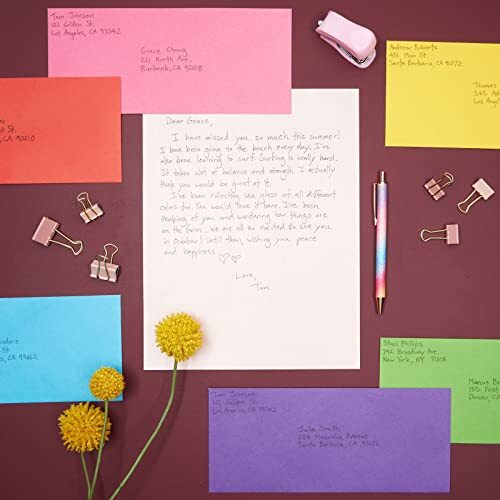 Tom Johnson
121 Golden St.
Los Angeles, CA 93342
Grace Chang
221 North Ave.
Burbank, CA 92108
Andrew Roberts
451 Main St.
Santa Barbara, CA 91072
Thomas
345
Los
St.
90210
Dear Grace,
I have missed you so much this summer!
I have been going to the beach every day. I've
also been learning to surf. Surfing is really hard.
It takes alot of balance and strength. I actually
think you would be great at it.
I've been collecting sea glass of all different
colors too. You would love it here. I've been
thinking of you and wondering how things are
on the farm... We are all so excited to see you
in October! Until then, wishing you peace
and happiness
Love,
Tom
St.
CA 93662
Stacy Phillips
742 Broadway Ave.
New York, NY
Marcus
105 First
Denver, CO
Tom Johnson
121 Golden St.
Los Angeles, CA 93342
Julie Smith
224 Magnolia Avenue
Santa Barbara, CA 93106